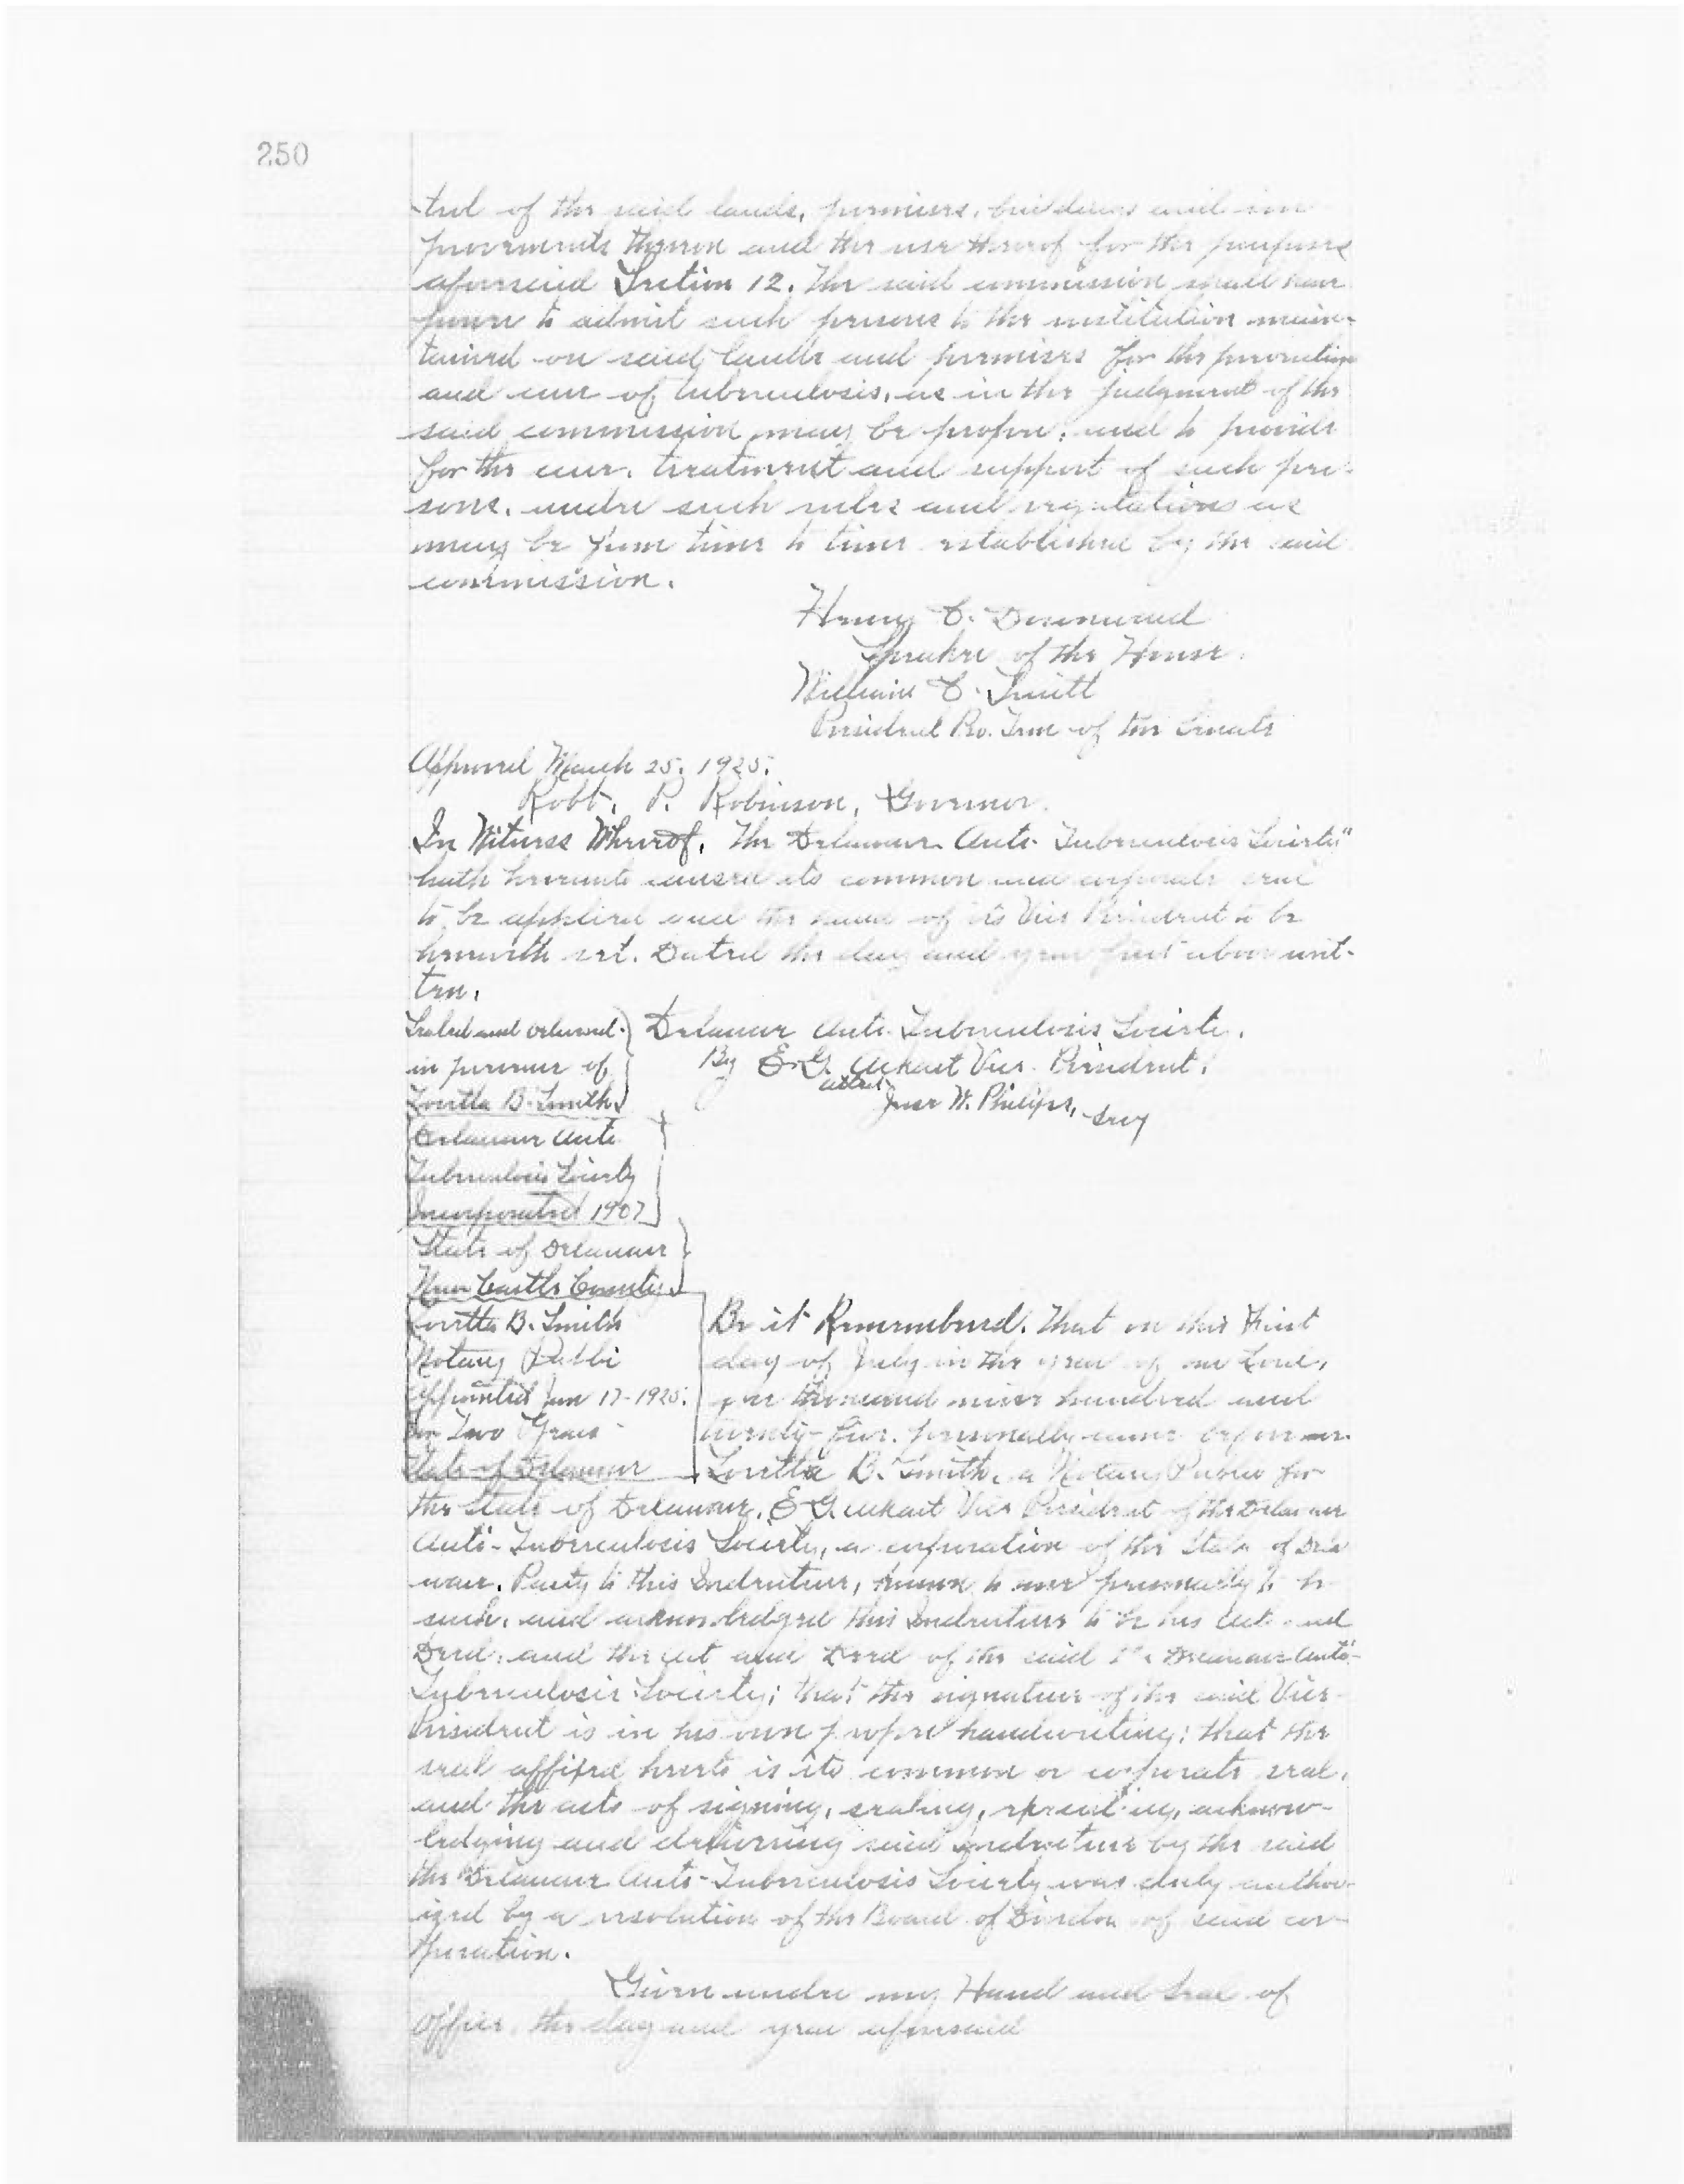 250
trol of the said lands, premises, buildings and im
provements thereon and the use thereof for the purpose
aforesaid Section 12. The said commission shall have
power to admit such persons to the institution main-
tained on said lands and premises for the prevention
and cure of tuberculosis, as in the judgment of the
said commission may be proper, and to provide
for the care, treatment and support of such per-
sons, under such rules and regulations as
may be from time to time established by the said
commission.
Henry C.
Speaker of the House.
William C. Smith
President Pro. Tem of the Senate
Approved March 25, 1925.
Robt. P. Robinson, Governor.
In Witness Whereof, The Delaware Anti-Tuberculosis Society"
hath hereunto caused its common and corporate seal
to be affixed and the name of its Vice President to be
herewith set. Dated the day and year first above writ-
ten.
Sealed and delivered
in presence of
Loretta B. Smith
Delaware Anti-Tuberculosis Society.
By E. G. Vice President.
attest
W. Philips, Secy
Delaware Anti
Tuberculosis Society
Incorporated 1907
State of Delaware
New Castle County
Loretta B. Smith
Notary Public
Appointed Jan 17-1925.
for Two Years
State of Delaware
Be it Remembered, That on this First
day of July in the year of our Lord,
one thousand nine hundred and
twenty-five, personally came before me
Loretta B. Smith, a Notary Public for
the State of Delaware, E. G. Vice President of the Delaware
Anti-Tuberculosis Society, a corporation of the State of Dela
ware, Party to this Indenture, known to me personally to be
such, and acknowledged this Indenture to be his Act and
Deed, and the act and Deed of the said The Delaware Anti-
Tuberculosis Society; that the signature of the said Vice-
President is in his own proper handwriting; that the
seal affixed hereto is its common or corporate seal,
and the acts of signing, sealing, executing, acknow-
ledging and delivering said Indenture by the said
the Delaware Anti-Tuberculosis Society was duly author-
ized by a resolution of the Board of Directors of said cor-
poration.
Given under my Hand and Seal of
Office, the day and year aforesaid